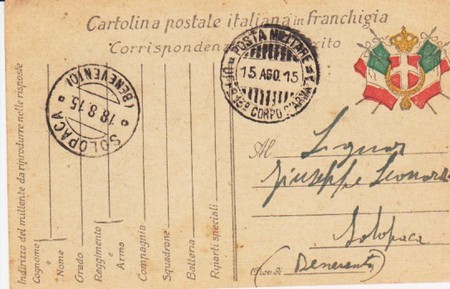 Cartolina postale italiana in franchigia
Corrisponden
cito
POSTA MILITARE
15. AGO. 15
CORPO D'ARMATA
SOLOPACA
18.8.15
(BENEVENTO)
Al Signor
Giuseppe Leonard
Solopaca
(Benevento)
Indirizzo del mittente da riprodurre nelle risposte
Cognome e
Nome
Grado
Reggimento e
Arma
Compagnia
Squadrone
Batteria
Riparti speciali